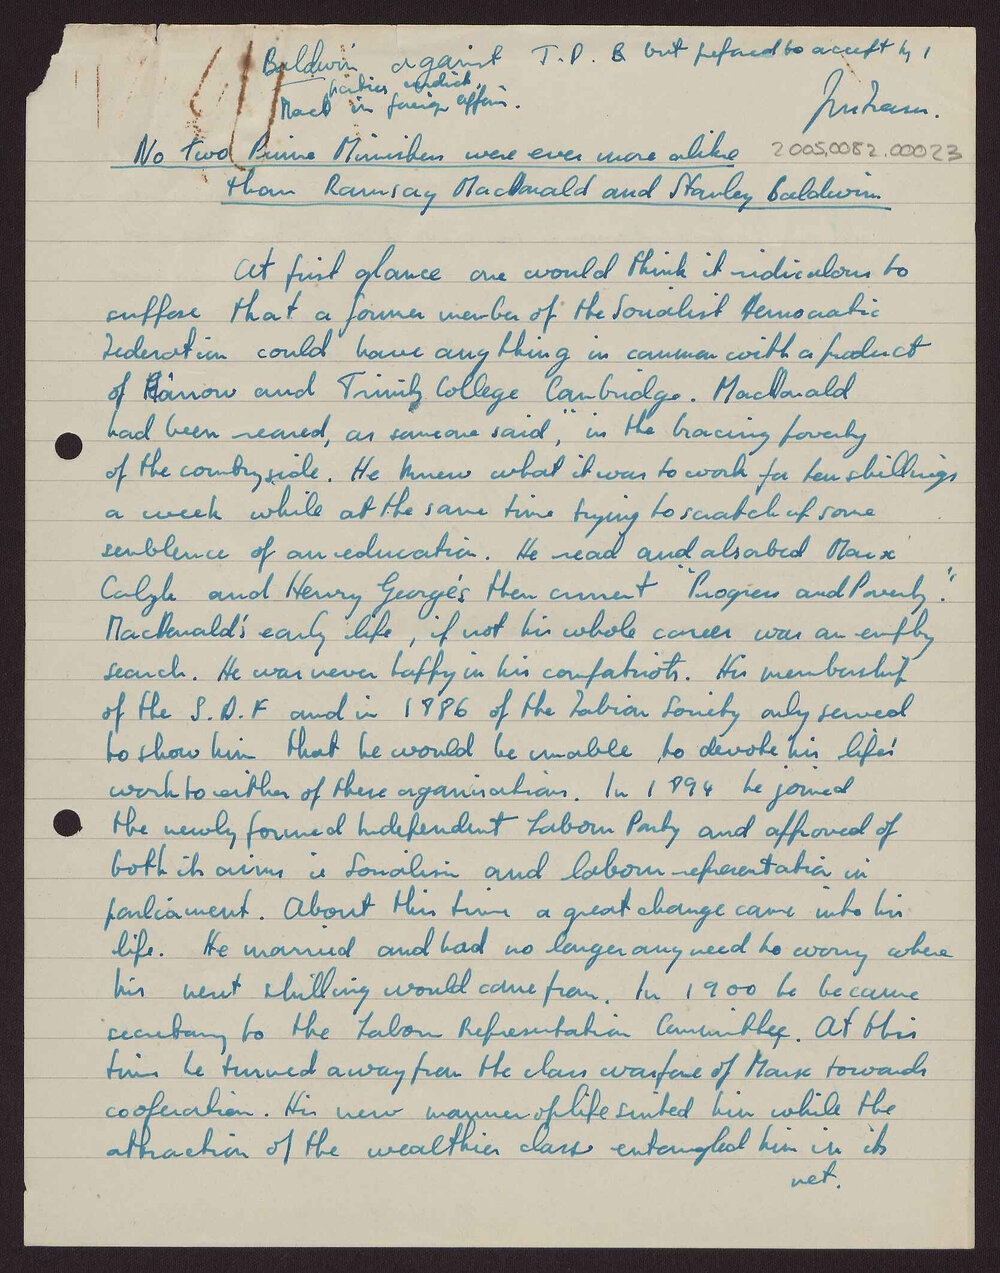 Baldwin against T.D.B but prepared to accept by
parties verdict
Mac in foreign affairs.
2005.0082.00023
No two Prime Ministers were ever more alike
than Ramsay MacDonald and Stanley Baldwin
At first glance one would think it ridiculous to
suppose that a former member of the Socialist Democratic
Federation could have anything in common with a product
of Harrow and Trinity College Cambridge. MacDonald
had been reared, as someone said, "in the bracing poverty
of the countryside. He knew what it was to work for ten shillings
a week while at the same time trying to scratch up some
semblence of an education. He read and absorbed Marx
Calyle and Henry George's then current "Progress and Poverty."
MacDonald's early life, if not his whole career was an empty
search. He was never happy in his compatriots. His membership
of the S.D.F and in 1886 of the Fabian Society only served
to show him that he would be unable to devote his life's
work to either of these organisations. In 1894 he joined
the newly formed Independent Labour Party and approved of
both its aims ie Socialism and labour representation in
parliament. About this time a great change came into his
life. He married and had no longer any need to worry where
his next shilling would come from. In 1900 he became
secretary to the Labour Representation Committee. At this
time he turned away from the class warfare of Marx towards
cooperation. His new manner of life suited him while the
attraction of the wealthier class entangled him in its
net.